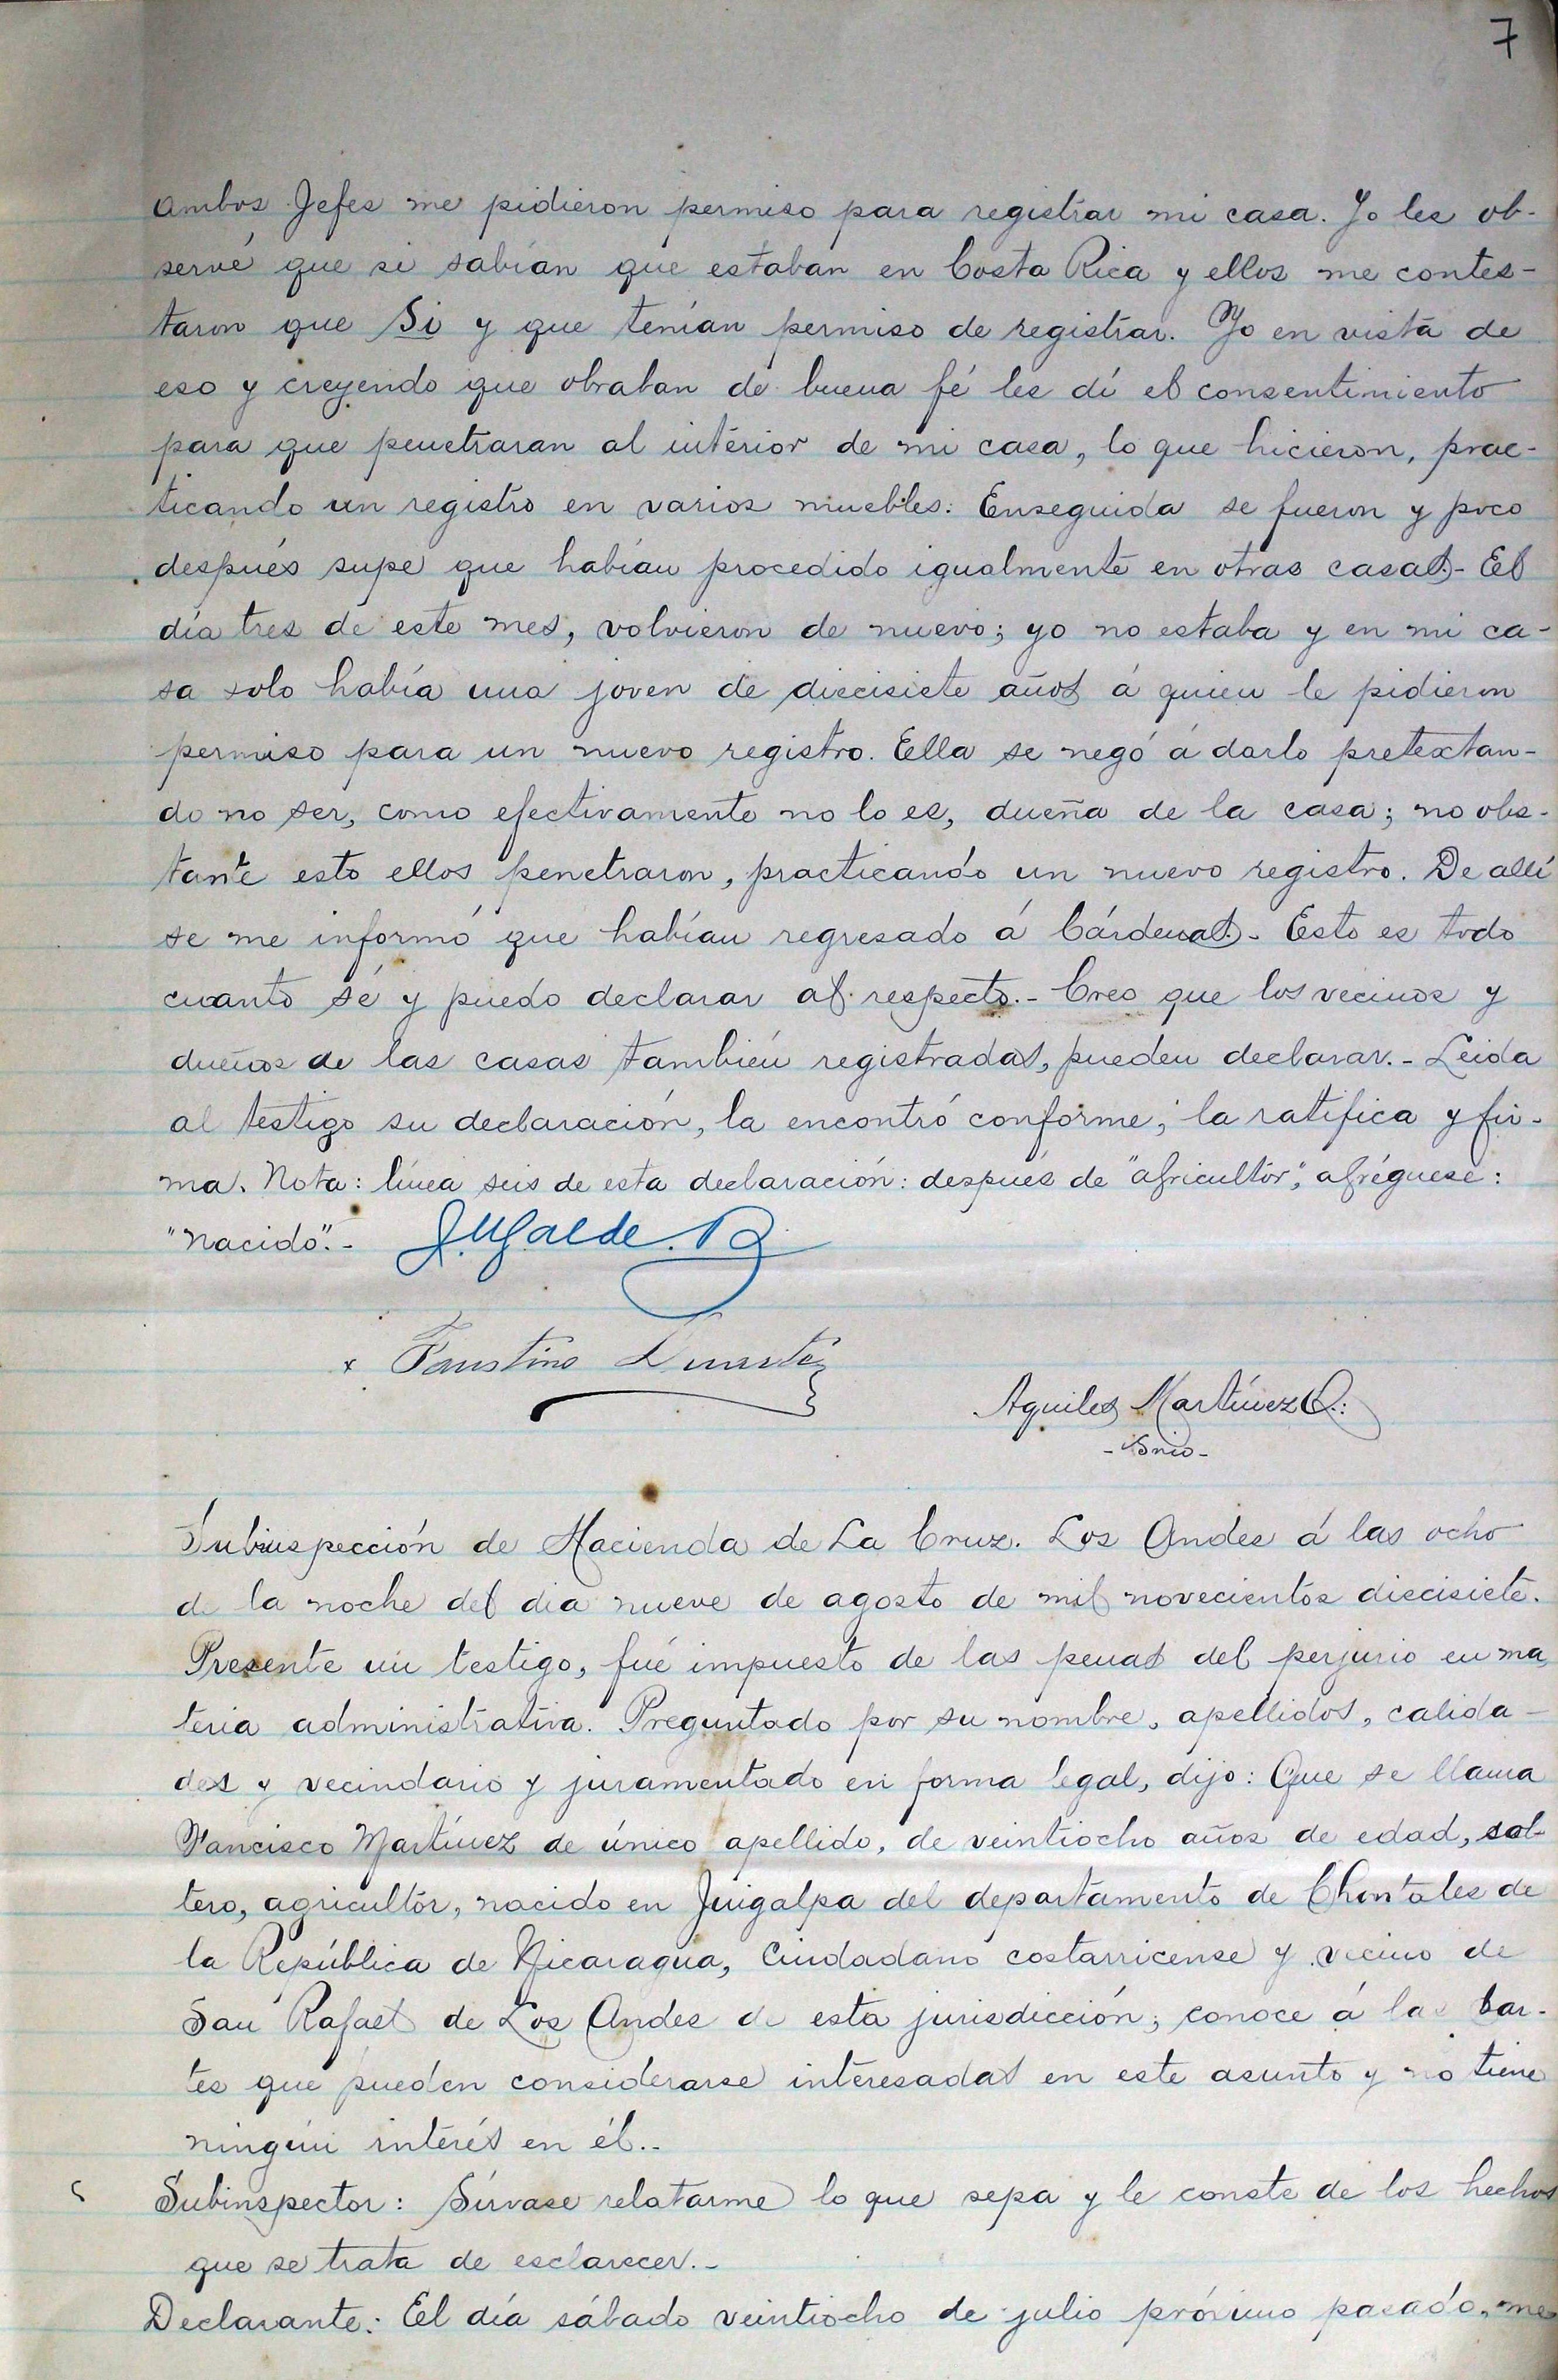 7
ambos Jefes me pidieron permiso para registrar mi casa. Yo les ob-
servé que si sabían que estaban en Costa Rica y ellos me contes-
taron que Si y que tenían permiso de registrar. Yo en vista de
eso y creyendo que obraban de buena fé les dí el consentimiento
para que penetraran al interior de mi casa, lo que hicieron, prac-
ticando un registro en varios muebles. Enseguida se fueron y poco
después supe que habían procedido igualmente en otras casas.- El
día tres de este mes, volvieron de nuevo; yo no estaba y en mi ca-
sa solo había una joven de diecisiete años á quien le pidieron
permiso para un nuevo registro. Ella se negó á darlo pretextan-
do no ser, como efectivamente no lo es, dueña de la casa; no obs-
tante esto ellos penetraron, practicando un nuevo registro. De allí
se me informó que habían regresado á Cárdenas.- Esto es todo
cuanto sé y puedo declarar al respecto.- Creo que los vecinos y
dueños de las casas también registradas, pueden declarar.- Leida
al testigo su declaración, la encontró conforme, la ratifica y fir-
ma. Nota: línea seis de esta declaración: después de "agricultor", agréguese:
"nacido".- J. Ugalde. R
x Faustino Duarte
Aquiles Martínez Q.:
-Srio-
Subinspección de Hacienda de La Cruz. Los Andes á las ocho
de la noche del dia nueve de agosto de mil novecientos diecisiete.
Presente un testigo, fué impuesto de las penas del perjurio en ma-
teria administrativa. Preguntado por su nombre, apellidos, calida-
des y vecindario y juramentado en forma legal, dijo: Que se llama
Francisco Martínez de único apellido, de veintiocho años de edad, sol-
tero, agricultor, nacido en Juigalpa del departamento de Chontales de
la República de Nicaragua, Ciudadano costarricense y vecino de
San Rafael de Los Andes de esta jurisdicción; conoce á las par-
tes que pueden considerarse interesadas en este asunto y no tiene
ningún interés en él..
Subinspector: Sírvase relatarme lo que sepa y le conste de los hechos
que se trata de esclarecer.-
Declarante: El día sábado veintiocho de julio próximo pasado, me